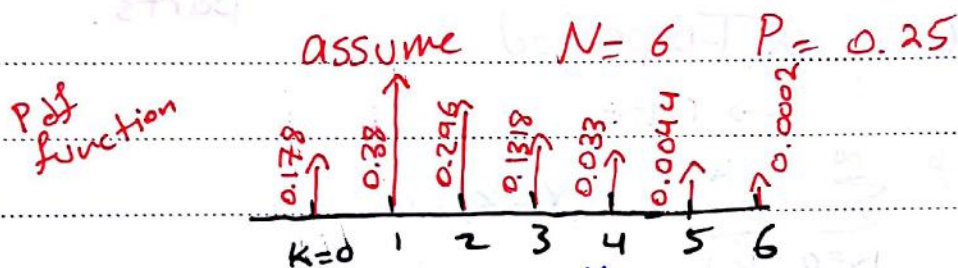 assume N= 6 P = 0.25
Pdf function
0.178 0.38 0.296 0.1318 0.033 0.0044 0.0002
K=0 1 2 3 4 5 6